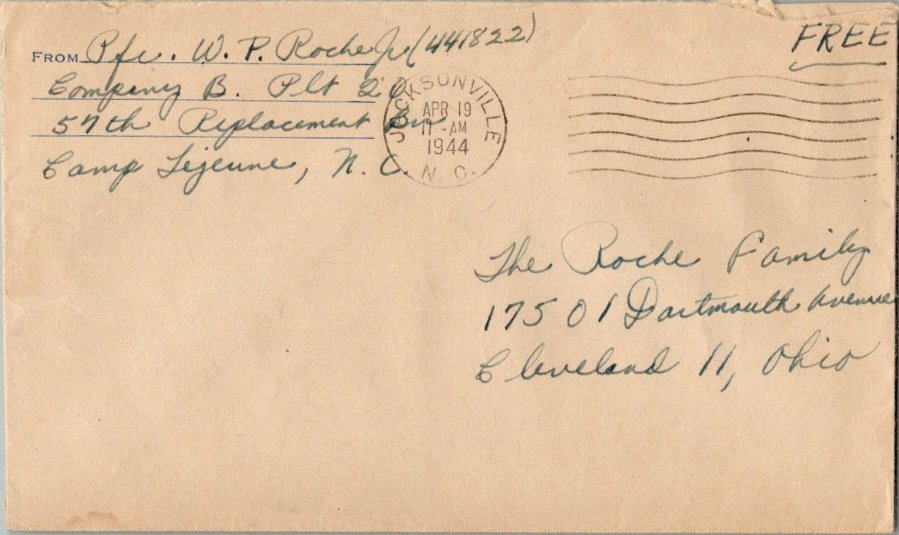 FROM Pfc. W. P. Roche Jr (441822)
Company B. Plt 20
57th Replacement Bn
Camp Lejeune, N. C.
JACKSONVILLE
APR 19
11 - AM
1944
N. C.
FREE
The Roche Family
17501 Dartmouth Avenue
Cleveland 11, Ohio